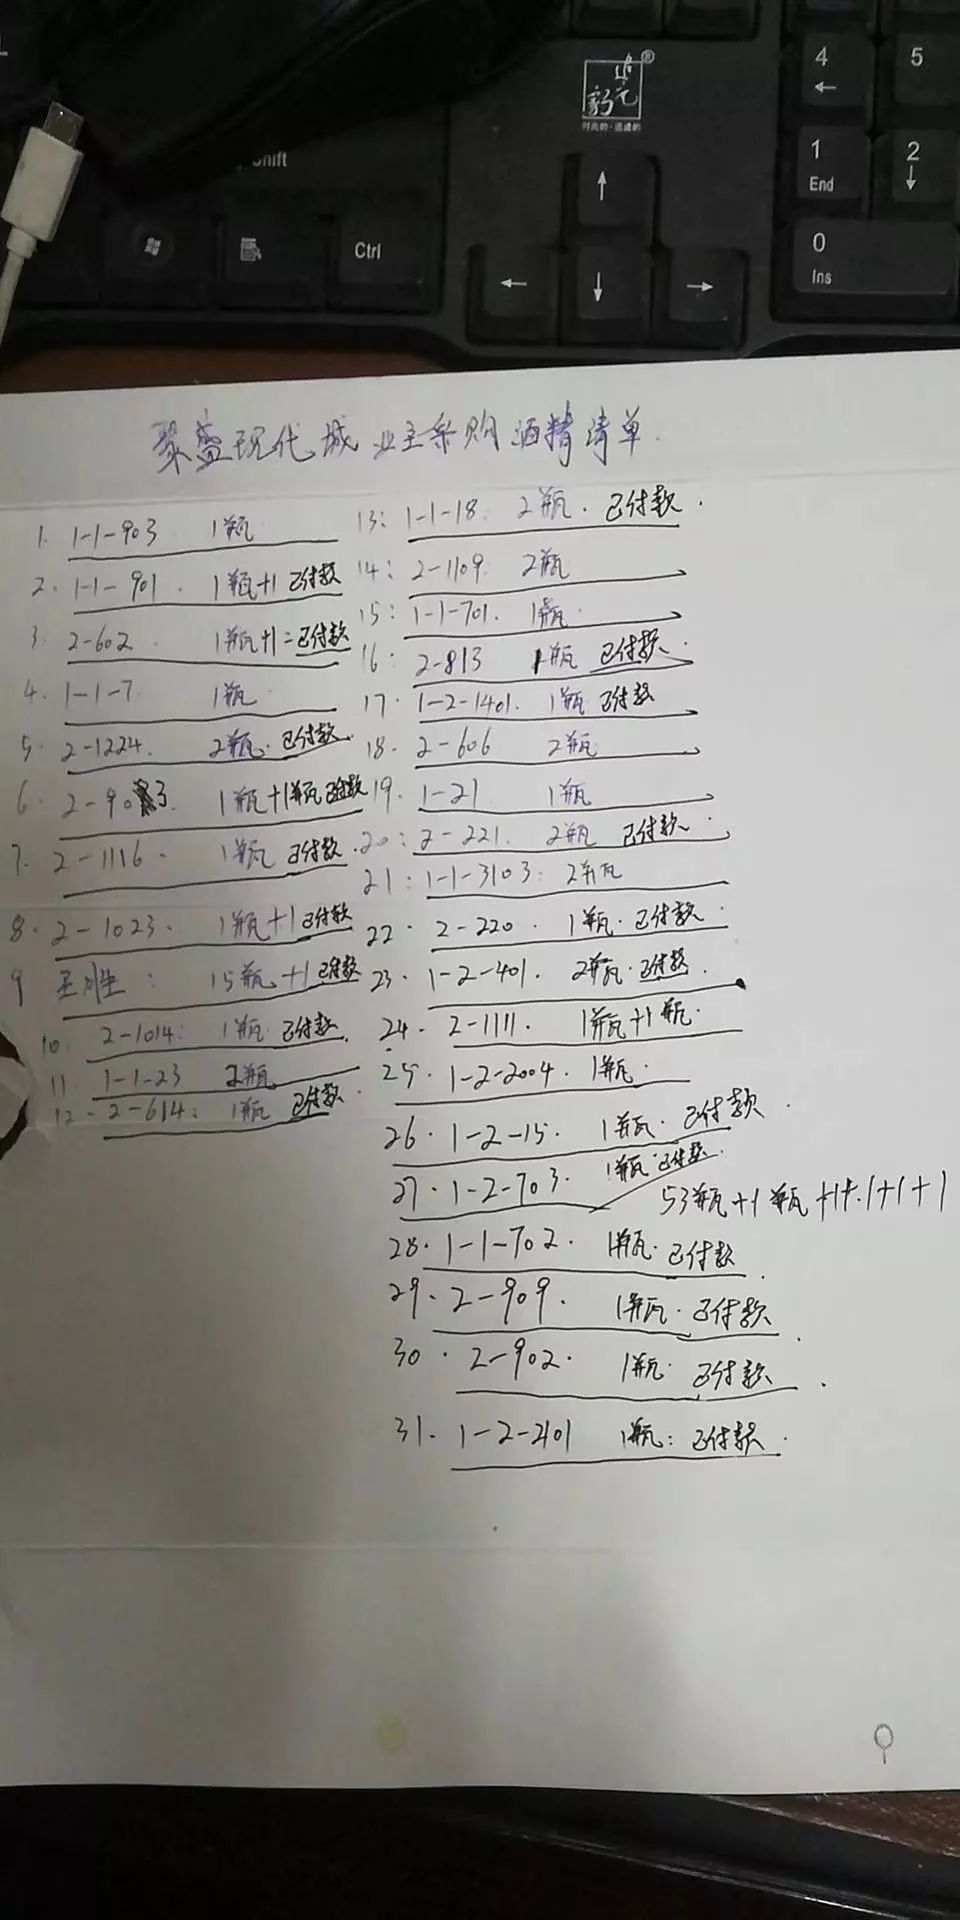 Shift
Ctrl
4
5
1
End
2
0
Ins
聚盛现代城业主采购酒精清单.
1. 1-1-903 1瓶
2. 1-1-901. 1瓶+1 已付款
3. 2-602. 1瓶+1=已付款
4. 1-1-7. 1瓶
5. 2-1224. 2瓶. 已付款
6. 2-903. 1瓶+1瓶已付款
7. 2-1116. 1瓶 已付款.
8. 2-1023. 1瓶+1已付款
9 : 15瓶+1已付款
10. 2-1014: 1瓶 已付款.
11 1-1-23 2瓶
12. 2-614: 1瓶 已付款.
13: 1-1-18. 2瓶. 已付款.
14: 2-1109. 2瓶
15: 1-1-701. 1瓶
16: 2-813 1瓶 已付款.
17. 1-2-1401. 1瓶 已付款
18. 2-606 2瓶
19. 1-21 1瓶
20: 2-221. 2瓶 已付款.
21: 1-1-3103: 2瓶
22. 2-220. 1瓶. 已付款.
23. 1-2-401. 2瓶. 已付款.
24. 2-1111. 1瓶+1瓶.
25. 1-2-2004. 1瓶.
26. 1-2-15. 1瓶. 已付款.
27. 1-2-703. 1瓶 已付款.
53瓶+1瓶+1+1+1+1
28. 1-1-702. 1瓶. 已付款.
29. 2-909. 1瓶. 已付款.
30. 2-902. 1瓶. 已付款.
31. 1-2-2101 1瓶: 已付款.